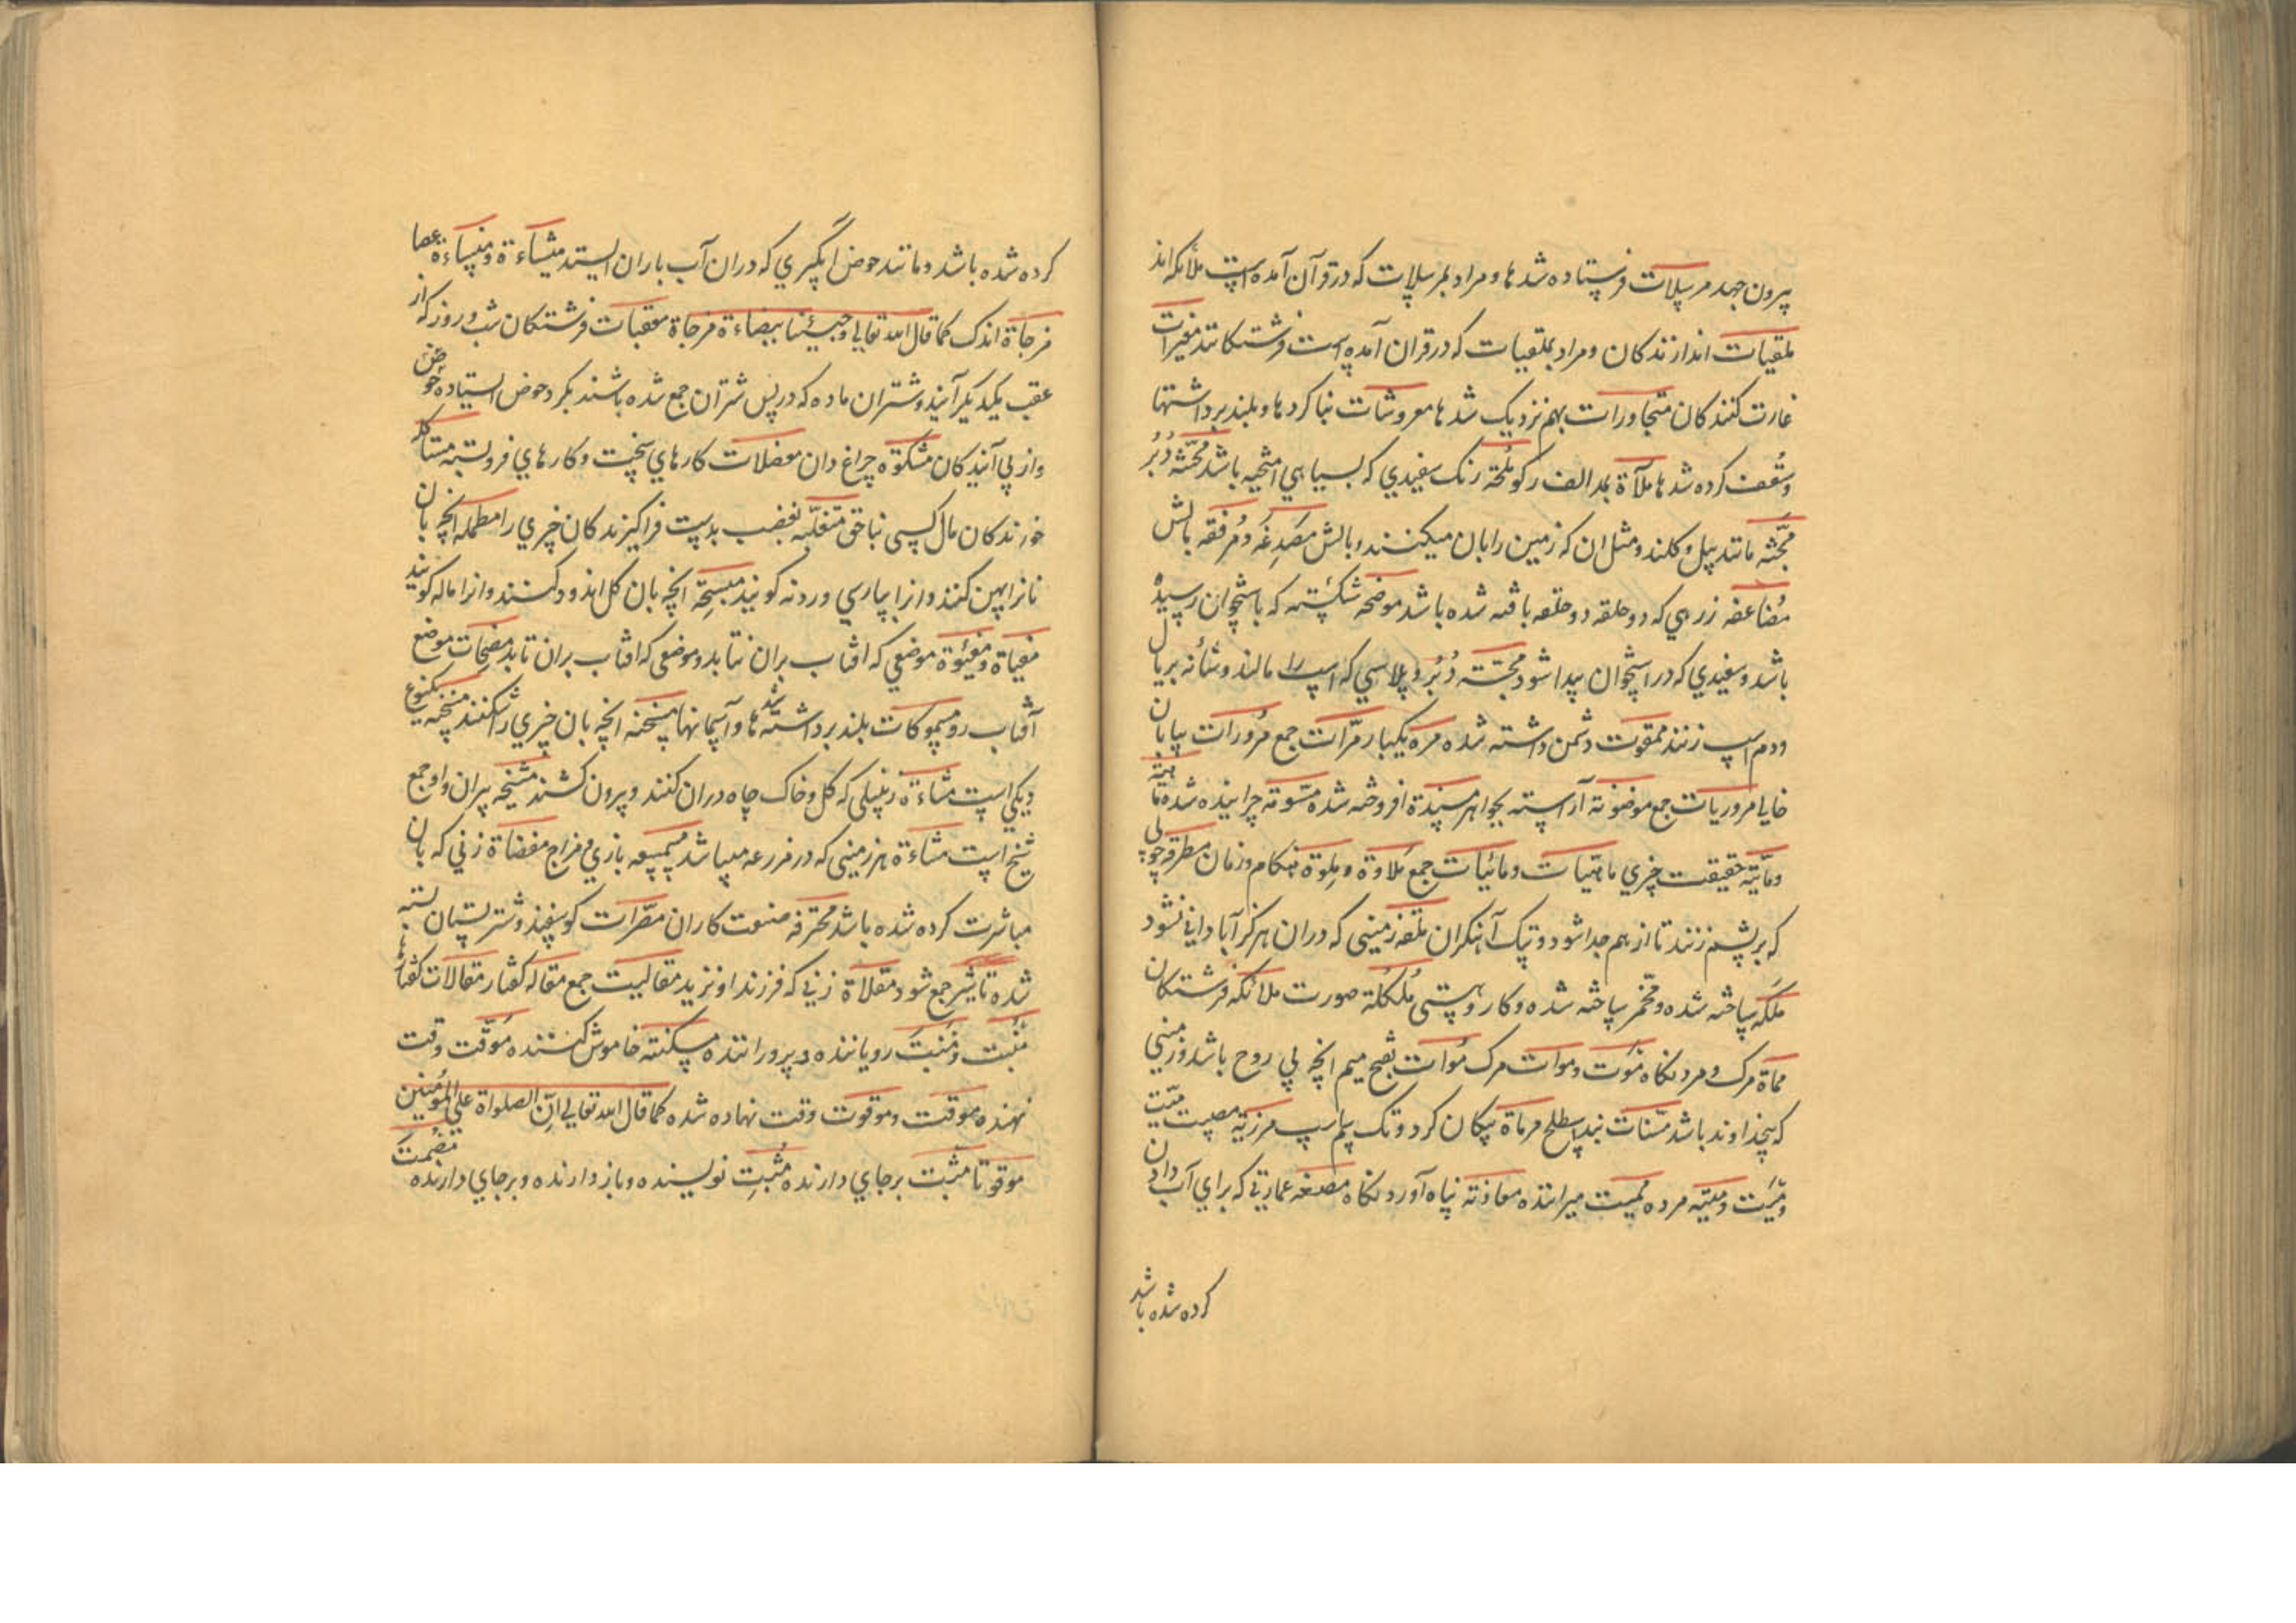 پیرون جهد مرسلات فرستاده شدها و مراد بمرسلات که در قرآن آمده است ملائکه اند
ملقیات اندازندکان و مراد بملقیات که در قران آمده است فرشتکانند مغیرات
غارت کنندکان متجاورات بهم نزدیک شدها معروشات بنا کردها و بلند برداشتها
وسقف کرده شدها ملآة بمد الف رکو ملحة رنک سفیدي که بسیاهي امیخته باشد محثه دبر
مجثه مانند بیل و کلند و مثل ان که زمین را بان میکنند و بالش مصدغه و مرفقه بالش
مضاعفه زرهي که دو حلقه دو حلقه بافته شده باشد موضحه شکسته که باستخوان رسیده
باشد و سفیدي که در استخوان پیدا شود مجثته دبر و پلاسي که اسپ را مالند و شانه بریال
ودم اسپ زنند ممقوت دشمن داشته شده مره یکبار مرات جمع مرورات بیابان
خالي مروریات جمع موضونه آراسته بجواهر مسندة افروخته شده مسومه چرانیده شده ماهیة
ومائیة حقیقت چیزي ماهیات و مائیات جمع ملاوة و ملوة هنکام و زمان مطرقه چوبي
که بر پشم زنند تا از هم جدا شود و پتک آهنکران ملقه زمیني که دران هرکز آباداني نشود
ملکه ساخته شده و مخمر ساخته شده و کار و هستي ملککة صورت ملائکه فرشتکان
مماة مرک و مردنکاه موت و موات مرک موات بفتح میم انچه بي روح باشد و زمیني
که بیخداوند باشد مسنات بند اسطلح مرماة پیکان کرد و تک سم اسپ مرزیة مصیبت میت
ومیت و میتة مرده ممیت میراننده معاذه پناه آوردنکاه مصنعه عمارتي که براي آب دادن
کرده شده باشد
کرده شده باشد و مانند حوض آبکیري که دران آب باران ایستد منشاءة و منساءة عصا
مزجاة اندک کما قال الله تعالي وجئنا ببضاعة مزجاة معقبات فرشتکان شب و روز که از
عقب یکدیکر آیند و شتران ماده که در پس شتران جمع شده باشند بکرد حوض ایستاده حوض
واز پي آیندکان مشکوة چراغ دان معضلات کارهاي سخت و کارهاي فروبسته مستاکله
خورندکان مال کسي بناحق متغلبه بغضب بدست فراکیرندکان چیزي را مطمله انچه بان
نانرا پهن کنند و انرا بپارسي وردنه کویند مسیحه انچه بان کل اندود کنند و انرا ماله کویند
مغیاة و مغیئوة موضعي که افتاب بران نتابد و موضعي که افتاب بران تابد مضحات موضع
آفتاب رو مسموکات بلند برداشته شدها و آسمانها مسخنه انچه بان چیزي را شکنند
دیکي است مشاءة زنبیلي که کل و خاک چاه دران کنند و بیرون کشند مشیخه پیران و او جمع
شیخ است مشاءة هر زمیني که در مزرعه میباشد بازي و مزاح مفضاة زني که بان
مباشرت کرده شده باشد محترفه صنعت کاران مصرات کوسفند و شتر پستان بسته
شده تا شیر جمع شود مقلاة زني که فرزند او نزید مقالیت جمع مقاله کفتار مقالات کفتارها
منبت و منبت رویاننده و پروراننده مسکته خاموش کننده موقت وقت
نهنده موقت و موقوت وقت نهاده شده کما قال الله تعالي ان الصلواة علي المؤمنین
موقوتا مثبت برجاي دارنده مثبت نویسنده و باز دارنده و برجاي دارنده